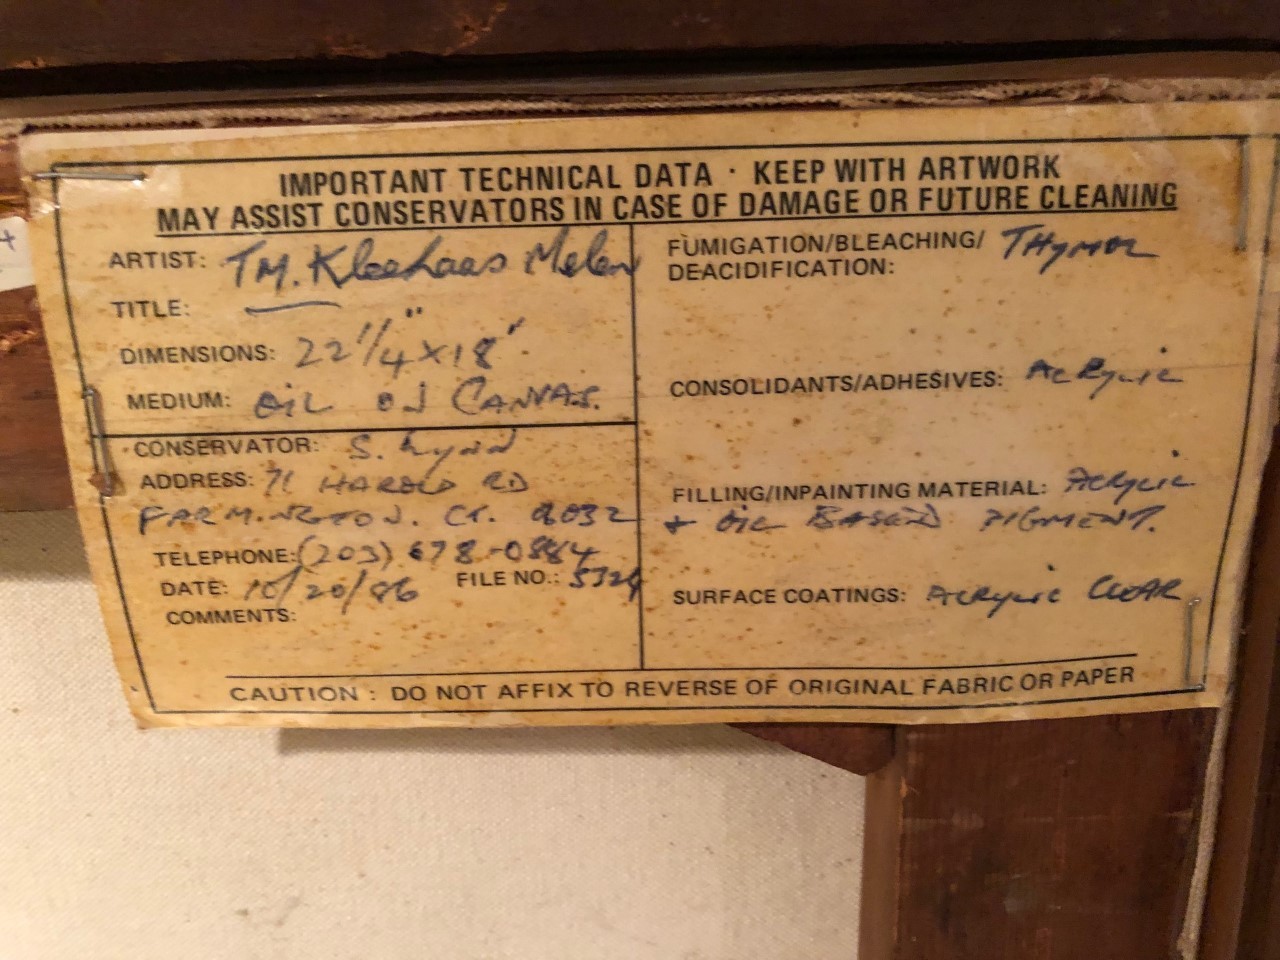 IMPORTANT TECHNICAL DATA · KEEP WITH ARTWORK
MAY ASSIST CONSERVATORS IN CASE OF DAMAGE OR FUTURE CLEANING
ARTIST: TM. Kleehaas
TITLE: —
DIMENSIONS: 22 1/4" x 18"
MEDIUM: OIL ON CANVAS.
CONSERVATOR: S. Lynn
ADDRESS: 71 HAROLD RD
FARMINGTON. CT. 0032
TELEPHONE: (203) 678-0884
DATE: 10/20/86 FILE NO.: 5324
COMMENTS:
FUMIGATION/BLEACHING/ THYMOL
DEACIDIFICATION:
CONSOLIDANTS/ADHESIVES: ACRYLIC
FILLING/INPAINTING MATERIAL: ACRYLIC
+ OIL BASED PIGMENT.
SURFACE COATINGS: ACRYLIC CLEAR
CAUTION : DO NOT AFFIX TO REVERSE OF ORIGINAL FABRIC OR PAPER